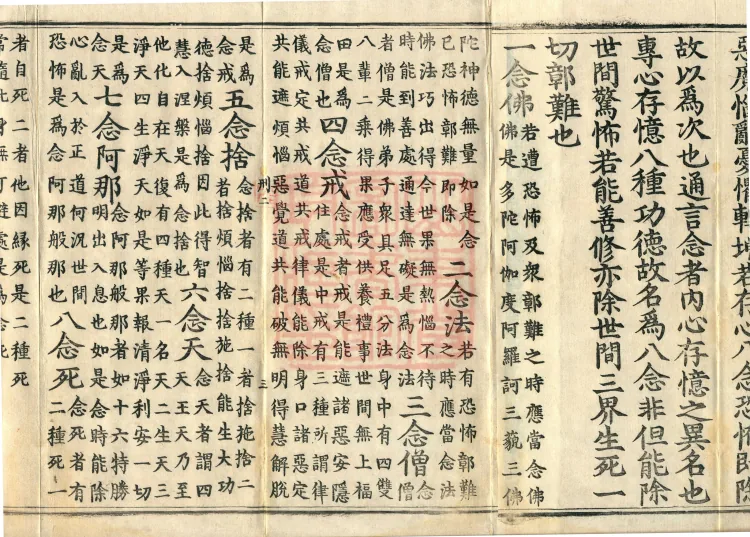 惡魔惱亂憂懼轉增若存心八念恐怖即除
故以爲次也通言念者內心存憶之異名也
專心存憶八種功德故名爲八念非但能除
世間驚怖若能善修亦除世間三界生死一
切鄣難也
一念佛若遭恐怖及衆鄣難之時應當念佛
佛是多陀阿伽度阿羅訶三藐三佛
陀神德無量如是念
已恐怖鄣難即除
二念法若有恐怖鄣難
之時應當念法念
佛法巧出得今世果無熱惱不待
時能到善處通達無礙是爲念法
三念僧念
僧
者僧是佛弟子衆具足五分法身中有四雙
八輩二乘得果應受供養禮事世間無上福
田是爲
念僧也
四念戒念戒者戒是能遮諸惡安隱
住處是中戒有三種所謂律
儀戒定共戒道共戒律儀能除身口諸惡定
共能遮煩惱惡覺道共能破無明得慧解脫
刑二
三
是爲
念戒
五念捨念捨者有二種一者捨施捨二
者捨煩惱捨捨施捨能生大功
德捨煩惱捨因此得智
慧入涅槃是爲念捨也
六念天念天者謂四
天王天乃至
他化自在天復有四種天一名天二生天三
淨天四生淨天如是等果報清淨利安一切
是爲
念天
七念阿那念阿那般那者如十六特勝
明出入息也如是念時能除
心亂入於正道何況世間
恐怖是爲念阿那般那也
八念死念死者有
二種死一
者自死二者他因緣死是二種死
常隨此身無可避處是爲念死